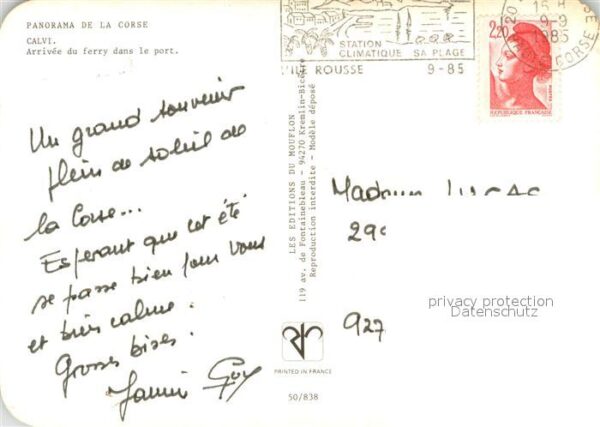 PANORAMA DE LA CORSE
CALVI.
Arrivée du ferry dans le port.
Un grand souvenir
plein de soleil de
la Corse...
Esperant que cet été
se passe bien pour vous
et bien calme.
Grosses bises.
Guy
LES EDITIONS DU MOUFLON
119 av. de Fontainebleau - 94270 Kremlin-Bicêtre
Reproduction interdite - Modèle déposé
PRINTED IN FRANCE
50/838
STATION
CLIMATIQUE SA PLAGE
ROUSSE 9-85
15 H
9-9
1985
CORSE
2,20
REPUBLIQUE FRANÇAISE
Madame
927
privacy protection
Datenschutz